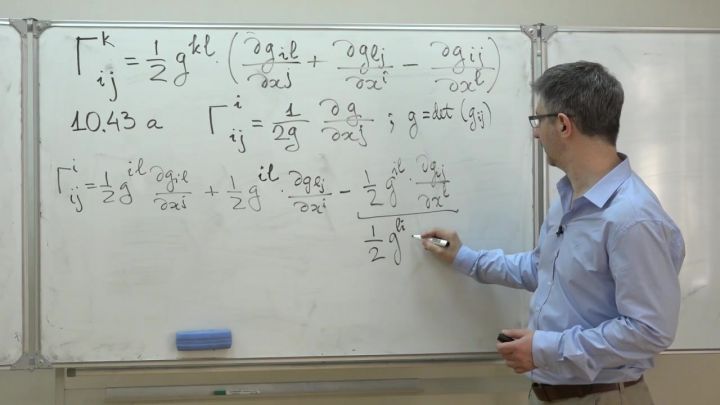 Γ^k_{ij} = \frac{1}{2} g^{kl} · ( \frac{∂g_{il}}{∂x^j} + \frac{∂g_{lj}}{∂x^i} − \frac{∂g_{ij}}{∂x^l} )
10.43 a Γ^i_{ij} = \frac{1}{2g} \frac{∂g}{∂x^j} ; g = det (g_{ij})
Γ^i_{ij} = \frac{1}{2} g^{il} \frac{∂g_{il}}{∂x^j} + \frac{1}{2} g^{il} · \frac{∂g_{lj}}{∂x^i} − \frac{1}{2} g^{il} · \frac{∂g_{ij}}{∂x^l}
\frac{1}{2} g^{li}